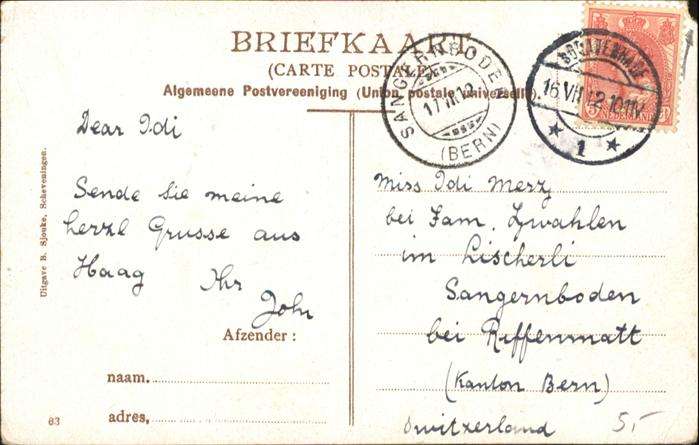 BRIEFKAART
(CARTE POSTALE)
Algemeene Postvereeniging (Union postale universelle).
SANGERNBODEN
17.VII.12
(BERN)
'S GRAVENHAGE
16 VII 12 10-11V
1
NEDERLAND
Dear Idi
Sende Sie meine
herzl Grusse aus
Haag Ihr
John
Miss Idi Merz
bei Fam. Zwahlen
im Lischerli
Sangernboden
bei Riffenmatt
(Kanton Bern)
Switzerland
5.-
Afzender:
naam.
adres,
83
Uitgave B. Sjouke, Scheveningen.